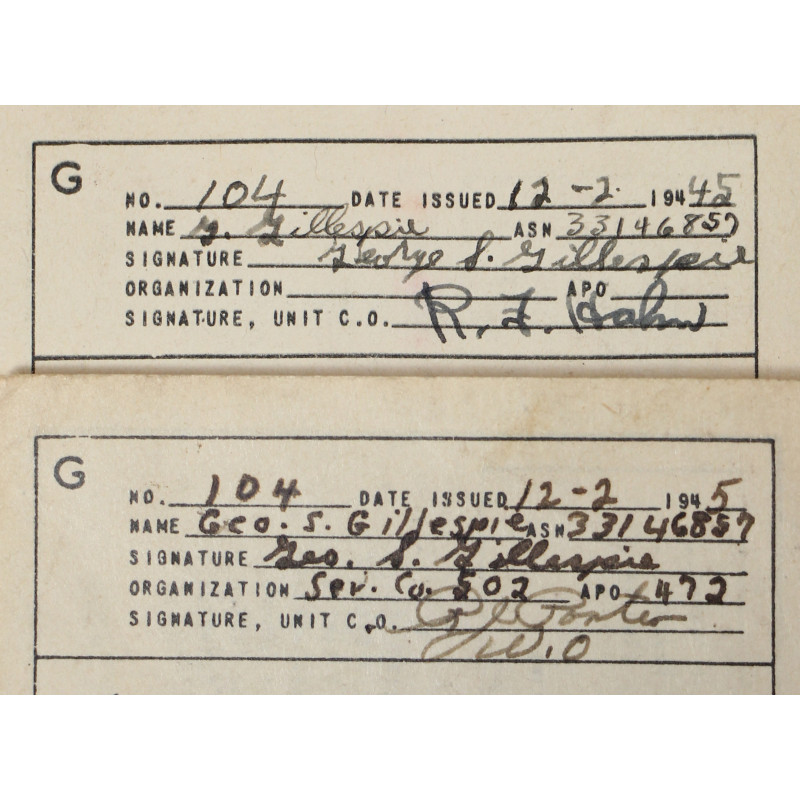 G
NO. 104 DATE ISSUED 12-2. 19445
NAME G. Gillespie ASN 33146857
SIGNATURE George S. Gillespie
ORGANIZATION APO
SIGNATURE, UNIT C.O. R. F. Hahn
G
NO. 104 DATE ISSUED 12-2 1945
NAME Geo. S. Gillespie ASN 33146857
SIGNATURE Geo. S. Gillespie
ORGANIZATION Ser. Co. 502 APO 472
SIGNATURE, UNIT C.O. Porter
W.O